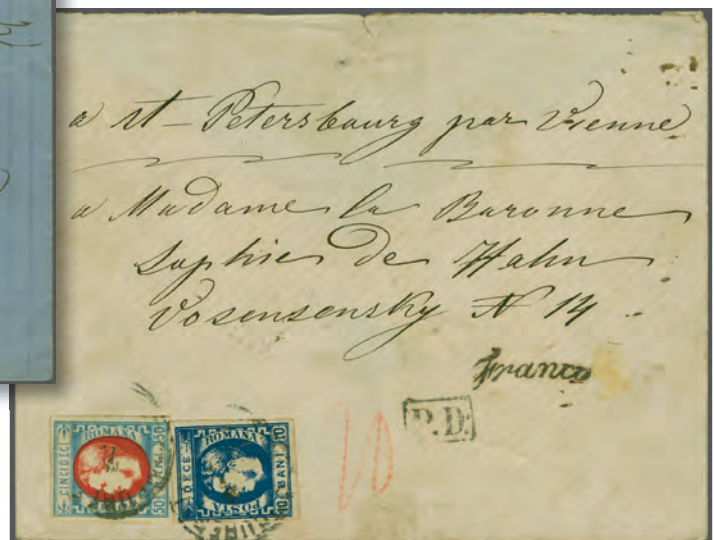 a st-Petersbourg par Vienne
a Madame la Baronne
Sophie De Hahn
Vosensensky N 14
franco
P.D.
10
CINCI DECI
ROMANA
50
BANI
50
DECE
ROMANA
10
BANI
10